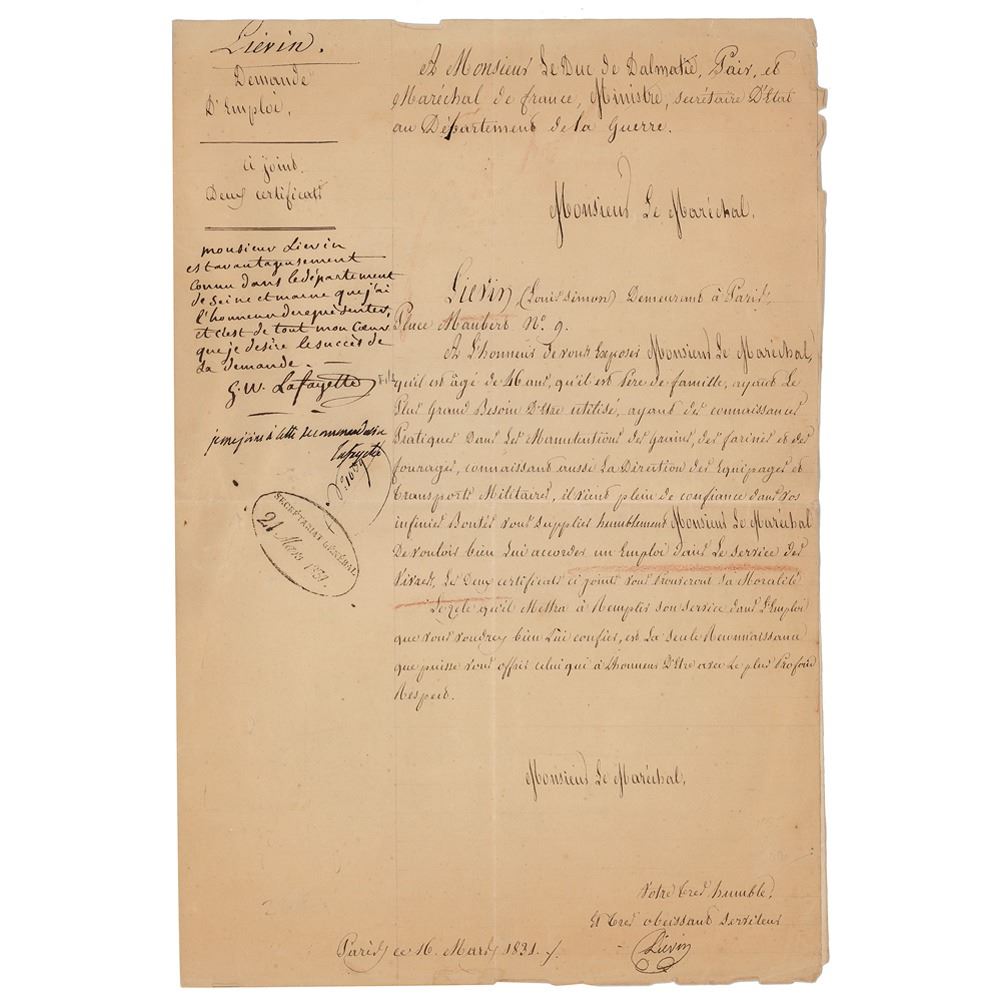 Liévin.
Demande
D'Emploi.
ci joint
Deux certificats
monsieur Lievin
est avantageusement
connu dans le département
de Seine et marne que j'ai
l'honneur de représenter,
et c'est de tout mon Cœur
que je desire le succès de
Sa demande.
G. W. Lafayette
je me joins à cette recommandation
Lafayette
SECRÉTARIAT GÉNÉRAL
21 Mars 1831.
A Monsieur Le Duc de Dalmatie, Pair, et
Maréchal de france, Ministre, secrétaire D'Etat
au Département de la Guerre.
Monsieur Le Maréchal,
Liévin (Louis Simon) Demeurant à Paris,
Place Maubert No. 9.
A L'honneur de vous Exposer Monsieur Le Maréchal,
qu'il est âgé de ans, qu'il est Père de famille, ayant Le
Plus Grand Besoin D'Etre utilisé, ayant des connaissances
Pratiques Dans Les Manutentions des Grains, des farines et des
fourages, connaissant aussi La Direction des Equipages et
Transports Militaires, il vient plein de confiance dans vos
infinies Bontés vous supplier humblement Monsieur Le Maréchal
De vouloir bien Lui accorder un Emploi dans Le service des
Vivres, Les Deux certificats ci joints vous prouveront sa Moralité
Le zele qu'il Mettra à Remplir son service dans L'Emploi
que vous voudrez bien Lui confier, est La seule Reconnaissance
que puisse vous offrir celui qui à L'honneur D'Etre avec Le plus Profond
Respect.
Monsieur Le Maréchal,
Votre tres humble,
Et tres obeissant serviteur
Liévin
Paris ce 16 Mars 1831.